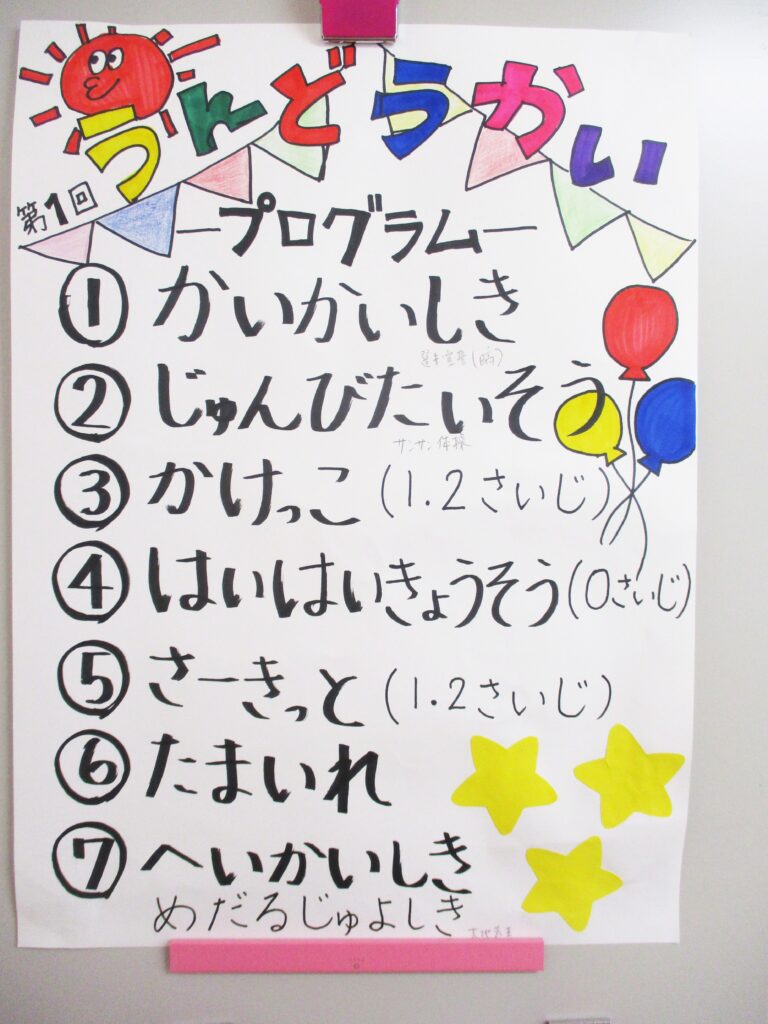 うんどうかい
第1回
ープログラムー
① かいかいしき
② じゅんびたいそう
サンサン体操
③ かけっこ (1.2さいじ)
④ はいはいきょうそう (0さいじ)
⑤ さーきっと (1.2さいじ)
⑥ たまいれ
⑦ へいかいしき
めだるじゅよしき